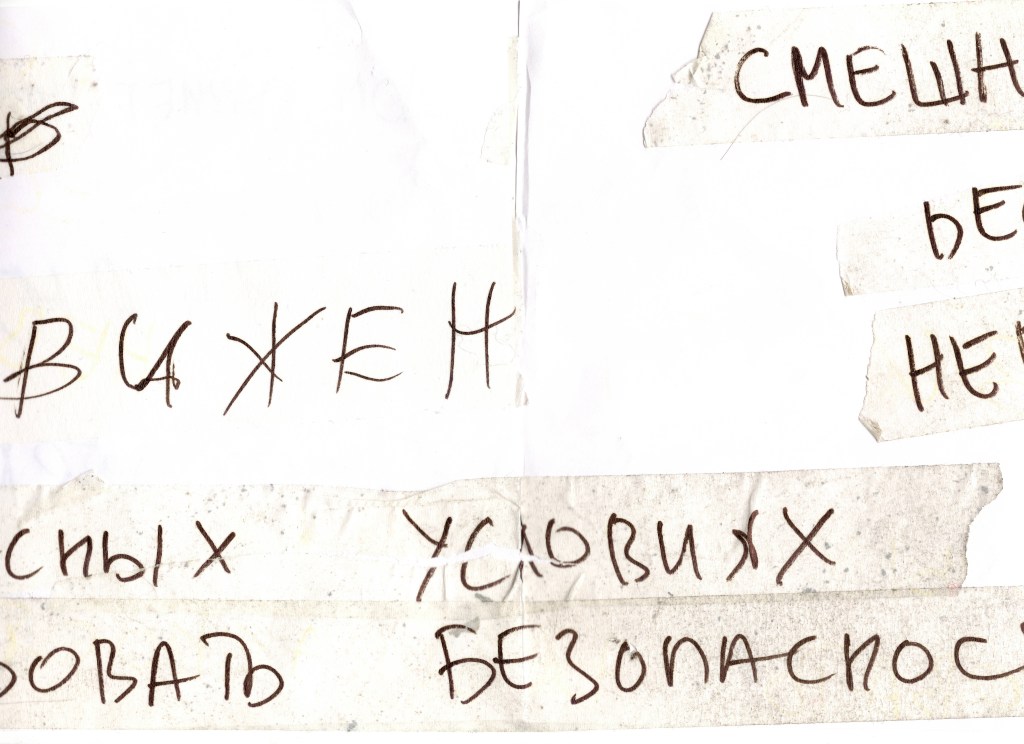 СМЕШН
БЕ
НЕ
ВИЖЕН
СНЫХ УСЛОВИЯХ
ОВАТЬ БЕЗОПАСНОС